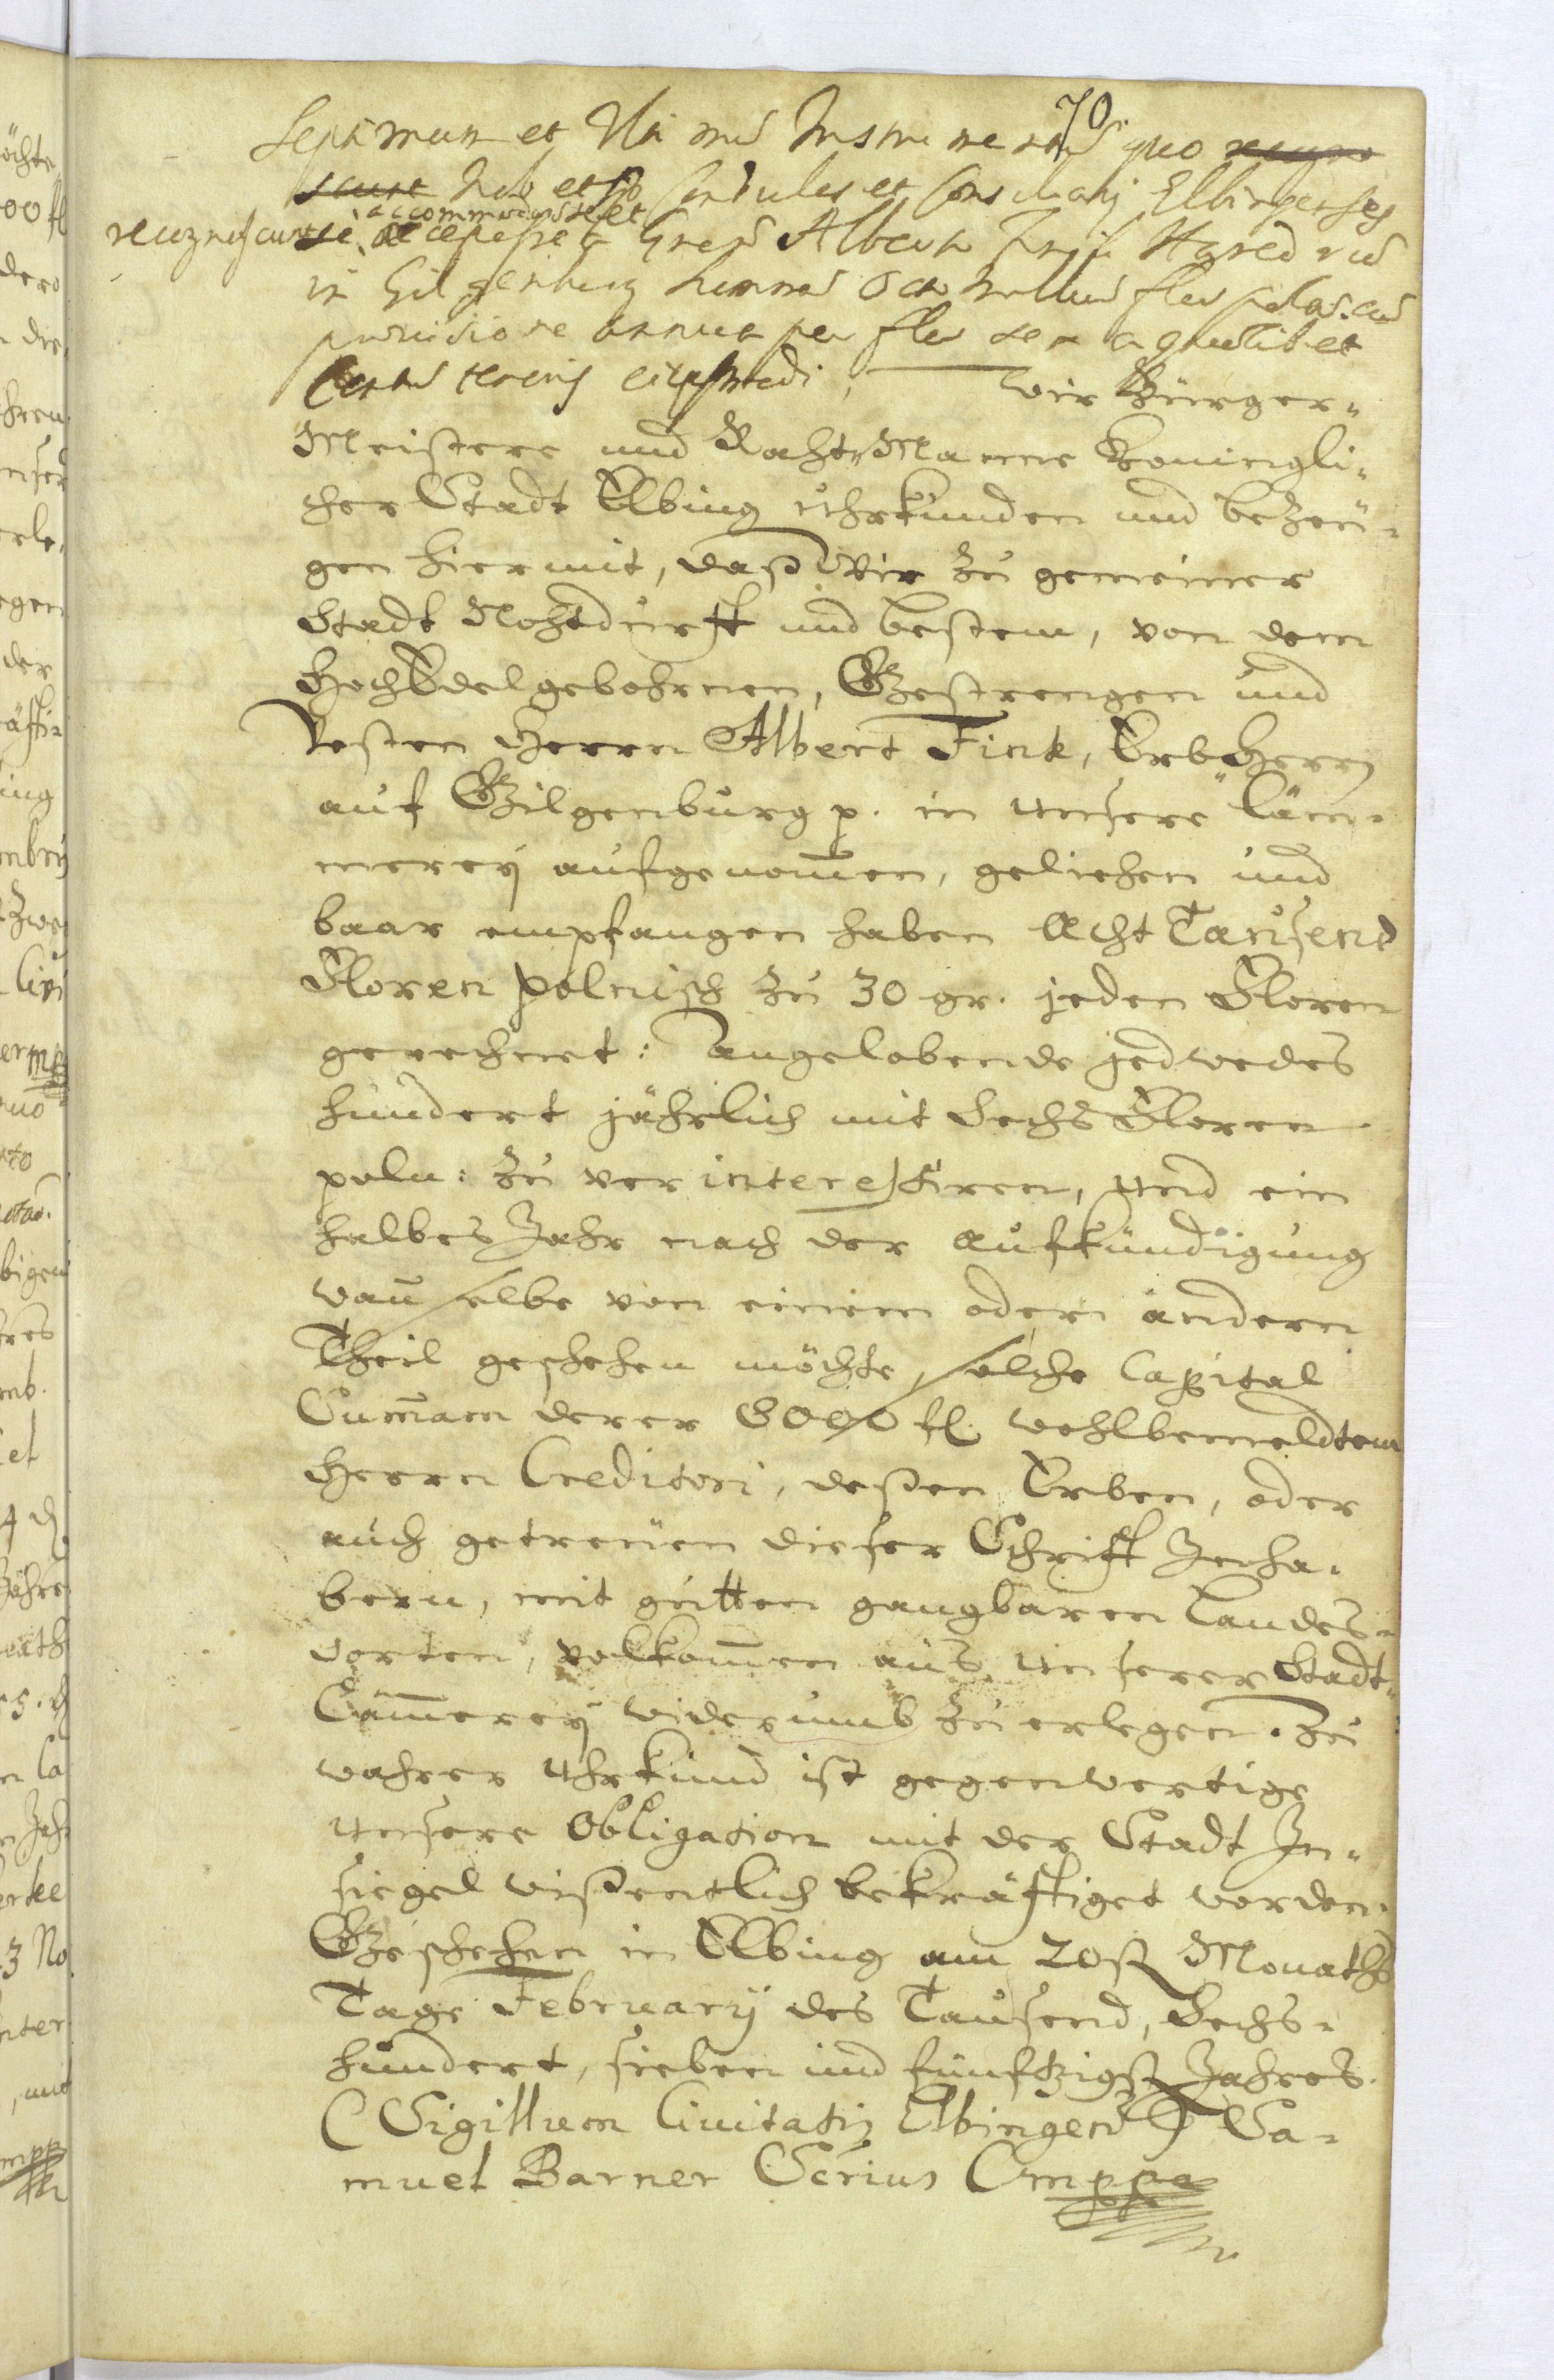 70.
Septimum et Ultimum Instrumentum quo recogno
scunt Nob. et Sp. Consules et Consulares Elbingenses
recognoscunt se accommodasse et accepisse a Gnero Alberto Finck Haerede
in Gilgenburg summam Octo millium flor. pol. cum
provisione annua per flor. sex a quolibet
Centum tenoris eiusmodi, Wir Bürger-
Meistere und Raht-Manne Königli-
cher Stadt Elbing uhrkunden und bezeü-
gen hiermit, daß Wir zu gemeiner
Stadt Nohtdurfft und bestem, von dem
HochEdelgebohrnen, Gestrengen und
Vesten Herrn Albert Fink, ErbHerrn
auf Gilgenburg p. in unsere Cäm-
merey aufgenom̄en, geliehen und
baar empfangen haben Acht Tausend
Floren polnisch zu 30 gr. jeden Floren
gerechnet: Angelobende jedwedes
hundert jährlich mit Sechs Floren
poln: zu verinteressiren, und ein
halbes Jahr nach der Aufkündigung
wan̄ selbe von einem oder andern
Theil geschehen möchte, solche Capital
Sum̄am derer 8000 fl. wohlbemeldtem
Herrn Creditori, deßen Erben, oder
auch getreuen dieser Schrifft Inha-
bern, mit gutten gangbaren Landes-
Sorten, volkom̄en aus unserer Stadt-
Cäm̄erey widerumb zu erlegen. Zu
wahrer Uhrkund ist gegenwertige
unsere Obligation mit der Stadt In-
siegel wißentlich bekräfftiget worden.
Geschehen in Elbing am 20st Monaths
Tage February des Tausend, Sechs-
hundert, sieben und funftzigst Jahres.
(Sigillum Civitatis Elbingens) Sa-
muel Barner Scrius Cmppa